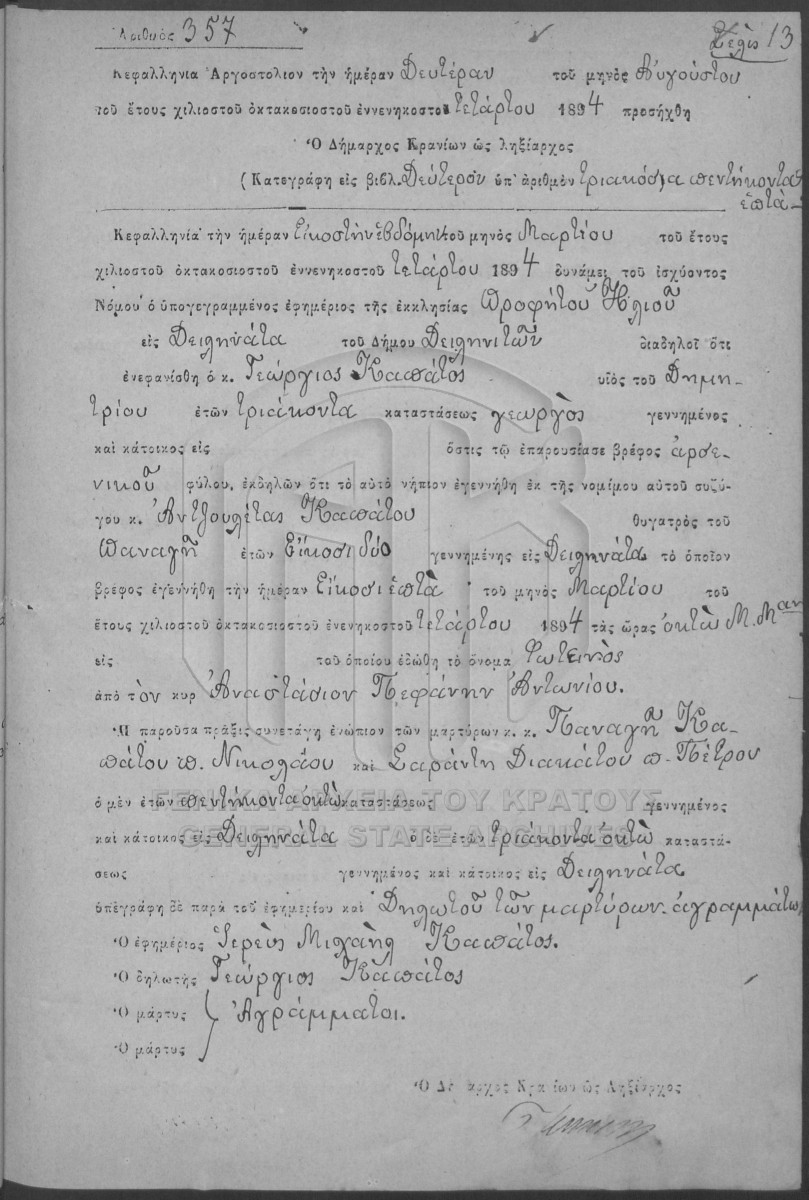 Ἀριθμός 357
Σελὶς 13
Κεφαλληνία Ἀργοστόλιον τὴν ἡμέραν Δευτέραν τοῦ μηνὸς Αὐγούστου
τοῦ ἔτους χιλιοστοῦ ὀκτακοσιοστοῦ ἐννενηκοστοῦ τετάρτου 1894 προσήχθη
Ὁ Δήμαρχος Κρανίων ὡς ληξίαρχος
(Κατεγράφη εἰς βιβλ. Δεύτερον ὑπ' ἀριθμὸν τριακόσια πεντήκοντα
ἑπτὰ
Κεφαλληνία τὴν ἡμέραν Εἰκοστὴν ἑβδόμην τοῦ μηνὸς Μαρτίου τοῦ ἔτους
χιλιοστοῦ ὀκτακοσιοστοῦ ἐννενηκοστοῦ τετάρτου 1894 δυνάμει τοῦ ἰσχύοντος
Νόμου ὁ ὑπογεγραμμένος ἐφημέριος τῆς ἐκκλησίας Προφήτου Ἠλιοῦ
εἰς Δειληνάτα τοῦ Δήμου Δειληνιτῶν διαδηλοῖ ὅτι
ἐνεφανίσθη ὁ κ. Γεώργιος Καπάτος υἱὸς τοῦ Δημη-
τρίου ἐτῶν τριάκοντα καταστάσεως γεωργὸς γεννημένος
καὶ κάτοικος εἰς ὅστις τῷ ἐπαρουσίασε βρέφος ἀρσε-
νικοῦ φύλου, ἐκδηλῶν ὅτι τὸ αὐτὸ νήπιον ἐγεννήθη ἐκ τῆς νομίμου αὐτοῦ συζύ-
γου κ. Ἀντζουλέτας Καπάτου θυγατρὸς τοῦ
Παναγῆ ἐτῶν Εἴκοσι δύο γεννημένης εἰς Δειληνάτα τὸ ὁποῖον
βρέφος ἐγεννήθη τὴν ἡμέραν Εἴκοσι ἑπτὰ τοῦ μηνὸς Μαρτίου τοῦ
ἔτους χιλιοστοῦ ὀκτακοσιοστοῦ ἐνενηκοστοῦ τετάρτου 1894 τὰς ὥρας ὀκτὼ Μ. Μαν
εἰς τοῦ ὁποίου ἐδώθη τὸ ὄνομα Φωτεινὸς
ἀπὸ τὸν κυρ Ἀναστάσιον Πεφάνην Ἀντωνίου.
Ἡ παροῦσα πρᾶξις συνετάγη ἐνώπιον τῶν μαρτύρων κ. κ. Παναγῆ Κα-
πάτου π. Νικολάου καὶ Σαράντη Διακάτου π. Πέτρου
ὁ μὲν ἐτῶν πεντήκοντα ὀκτὼ καταστάσεως γεννημένος
ΓΕΝΙΚΑ ΑΡΧΕΙΑ ΤΟΥ ΚΡΑΤΟΥΣ
καὶ κάτοικος εἰς Δειληνάτα ὁ δὲ ἐτῶν τριάκοντα ὀκτὼ καταστά-
GENERAL STATE ARCHIVES
σεως γεννημένος καὶ κάτοικος εἰς Δειληνάτα
ὑπεγράφη δὲ παρὰ τοῦ ἐφημερίου καὶ Δηλωτοῦ τῶν μαρτύρων ἀγραμμάτων
Ὁ ἐφημέριος Ἱερεὺς Μιχαὴλ Καπάτος.
Ὁ δηλωτὴς Γεώργιος Καπάτος
Ὁ μάρτυς Ἀγράμματοι.
Ὁ μάρτυς
Ὁ Δήμαρχος Κρανίων ὡς Ληξίαρχος